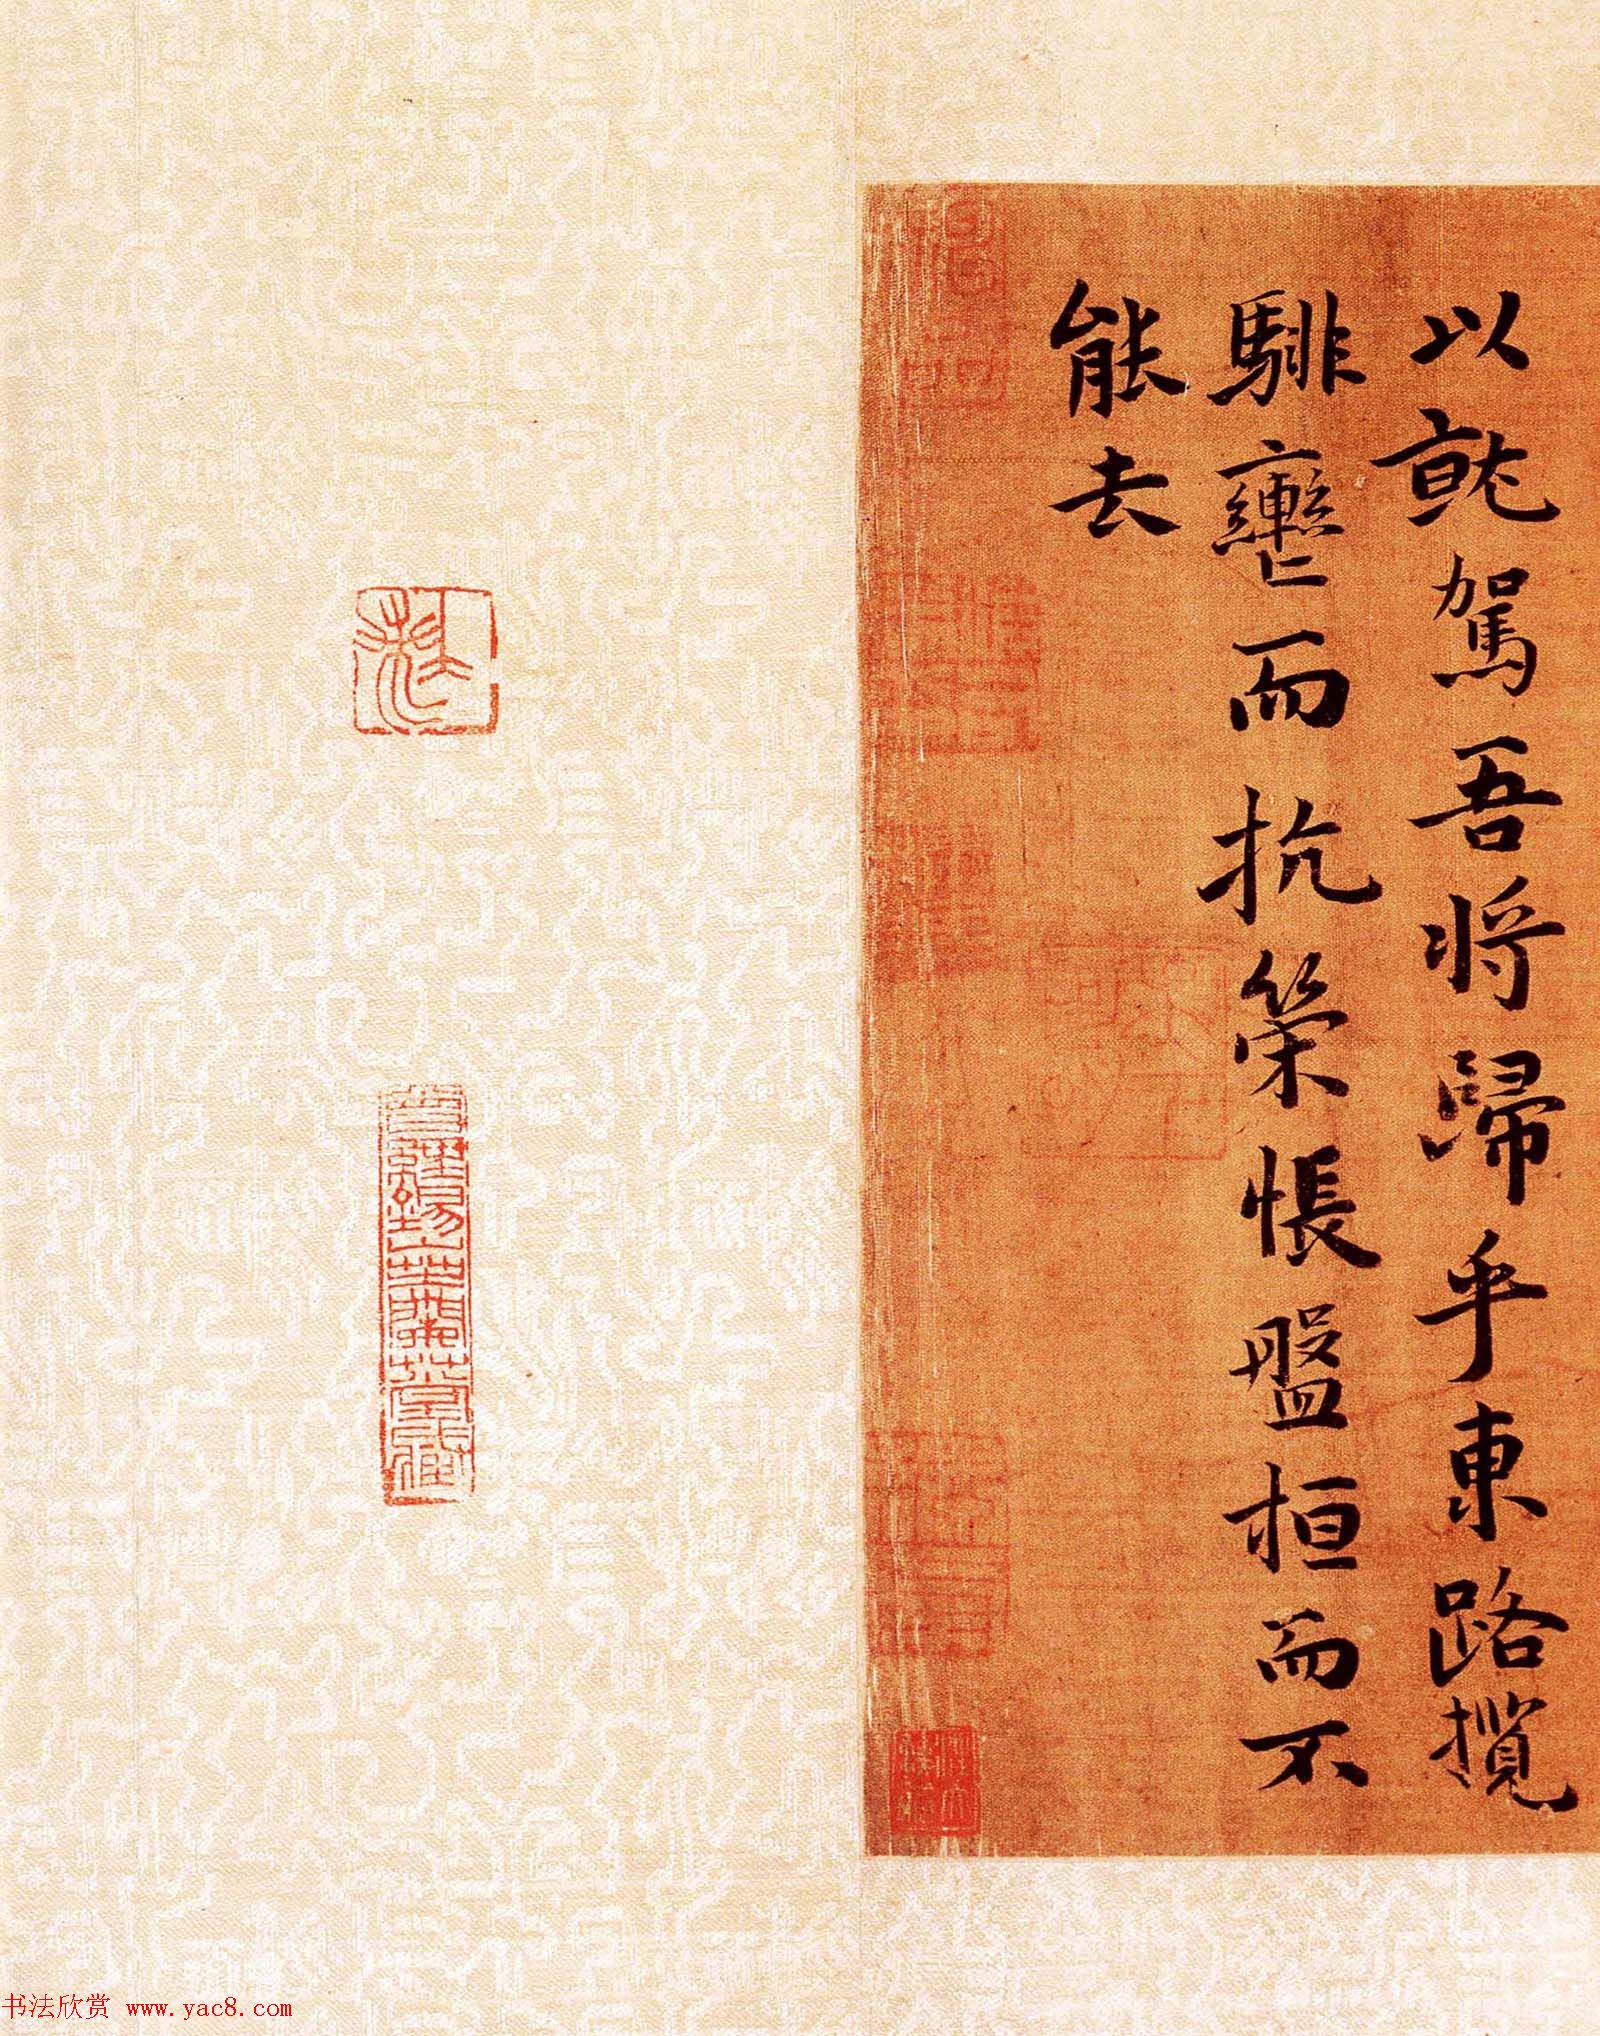 以就駕吾将歸乎東路攬
騑轡而抗策悵盤桓而不
能去
书法欣赏 www.yac8.com